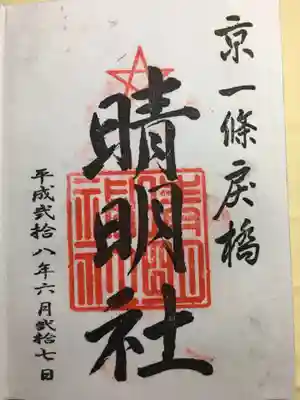 京一條戻橋
晴明社
平成弐拾八年六月弐拾七日